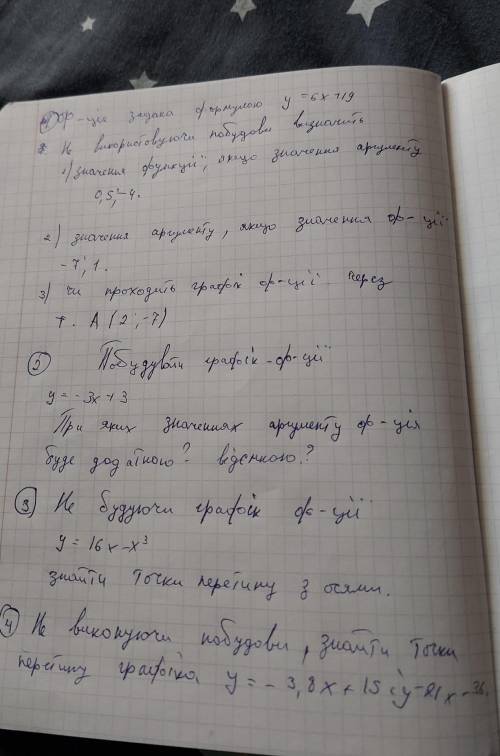 ① Ф-ція задана формулою y = 6x+19
Не використовуючи побудови визначить
1) значення функції, якщо значення аргументу
0,5; -4.
2) значення аргументу, якщо значення ф-ції
-7; 1.
3) чи проходить графік ф-ції через
т. A (2; -7)
② Побудувати графік ф-ції
y = -3x+3
При яких значеннях аргументу ф-ція
буде додатною? відємною?
③ Не будуючи графік ф-ції
y = 16x-x³
знайти точки перетину з осями.
④ Не виконуючи побудови, знайти точки
перетину графіка y = -3,8x+15 і y=